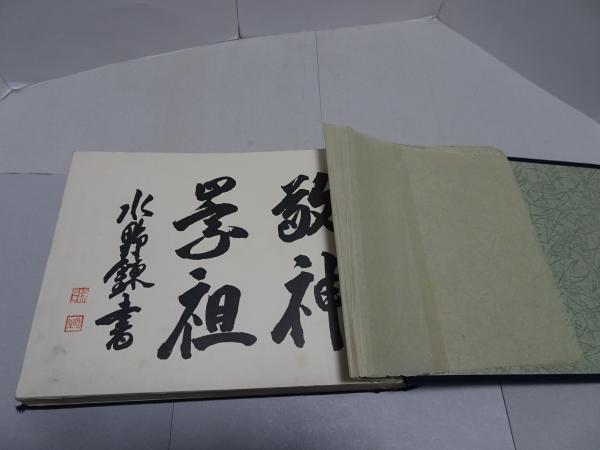 敬神
崇祖
水野錬書